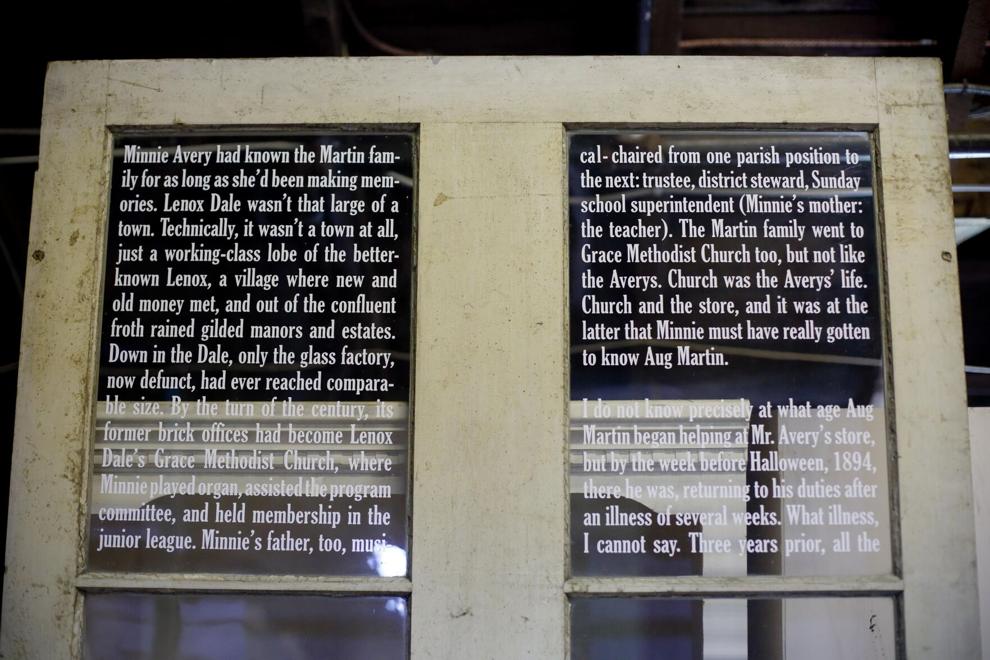 Minnie Avery had known the Martin fam-
ily for as long as she'd been making mem-
ories. Lenox Dale wasn't that large of a
town. Technically, it wasn't a town at all,
just a working-class lobe of the better-
known Lenox, a village where new and
old money met, and out of the confluent
froth rained gilded manors and estates.
Down in the Dale, only the glass factory,
now defunct, had ever reached compara-
ble size. By the turn of the century, its
former brick offices had become Lenox
Dale's Grace Methodist Church, where
Minnie played organ, assisted the program
committee, and held membership in the
junior league. Minnie's father, too, musi-
cal- chaired from one parish position to
the next: trustee, district steward, Sunday
school superintendent (Minnie's mother:
the teacher). The Martin family went to
Grace Methodist Church too, but not like
the Averys. Church was the Averys' life.
Church and the store, and it was at the
latter that Minnie must have really gotten
to know Aug Martin.
I do not know precisely at what age Aug
Martin began helping at Mr. Avery's store,
but by the week before Halloween, 1894,
there he was, returning to his duties after
an illness of several weeks. What illness,
I cannot say. Three years prior, all the